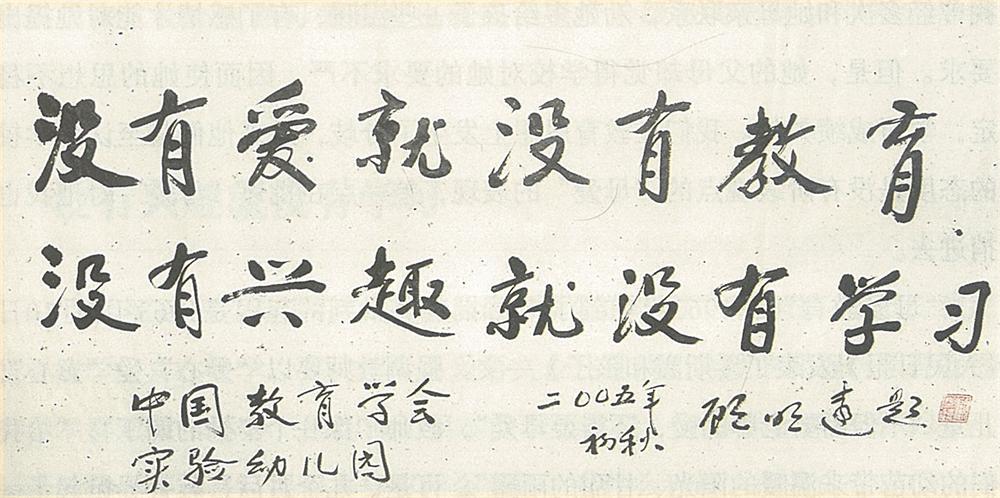 没有爱就没有教育
没有兴趣就没有学习
中国教育学会
实验幼儿园
二00五年
初秋
顾明远题